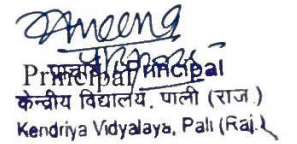 Principal
प्राचार्य/Principal
केन्द्रीय विद्यालय, पाली (राज.)
Kendriya Vidyalaya, Pali (Raj.)